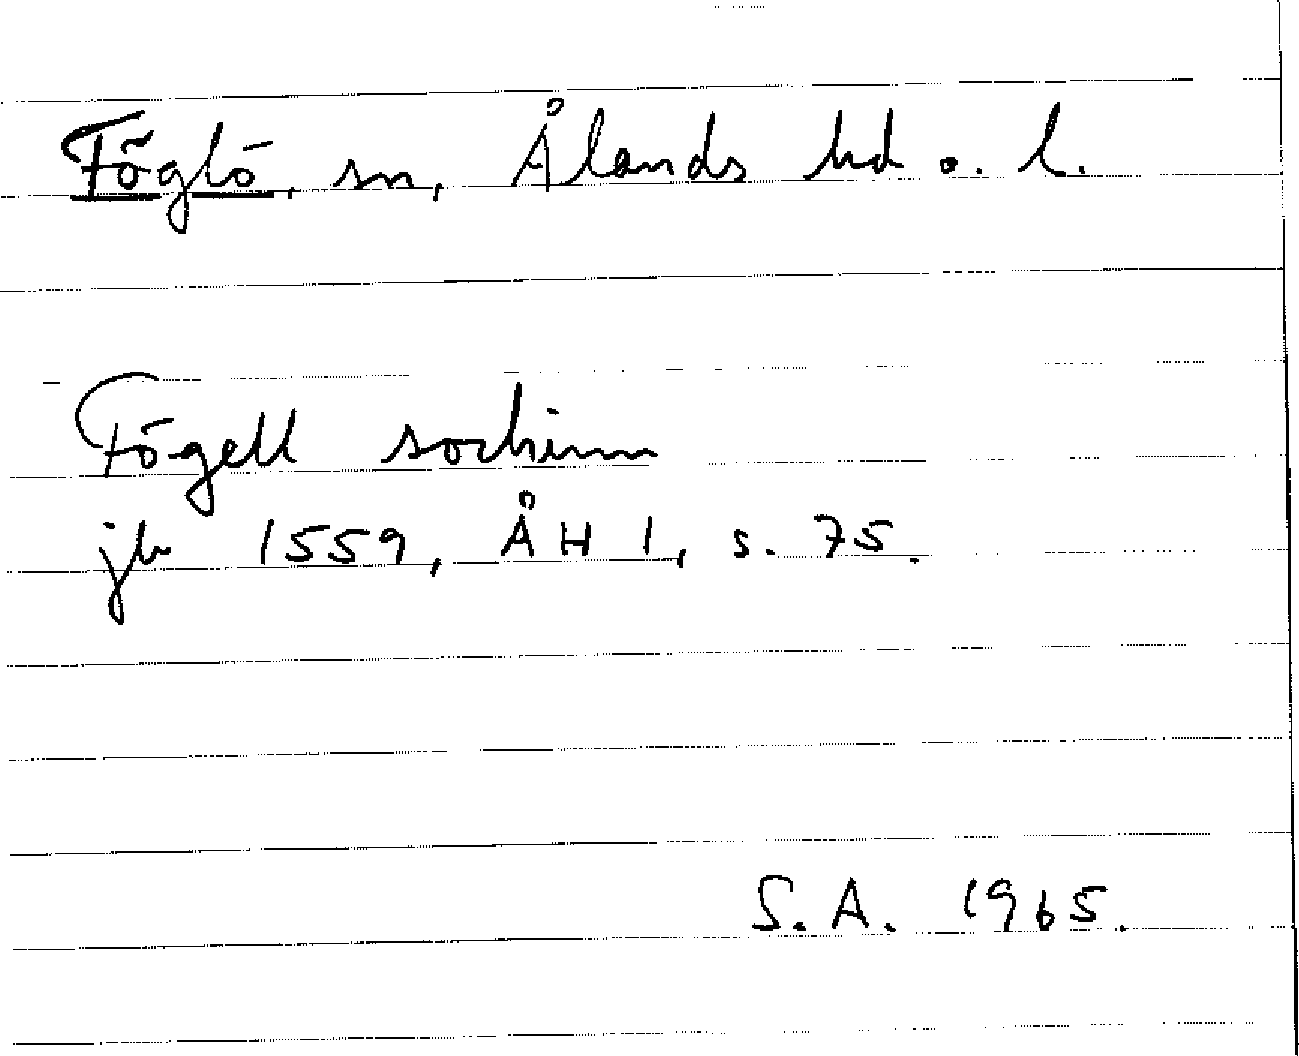 Föglö, sn, Ålands hd o. l.
Fögell sochenn
jb 1559, ÅH 1, s. 75.
S.A. 1965.